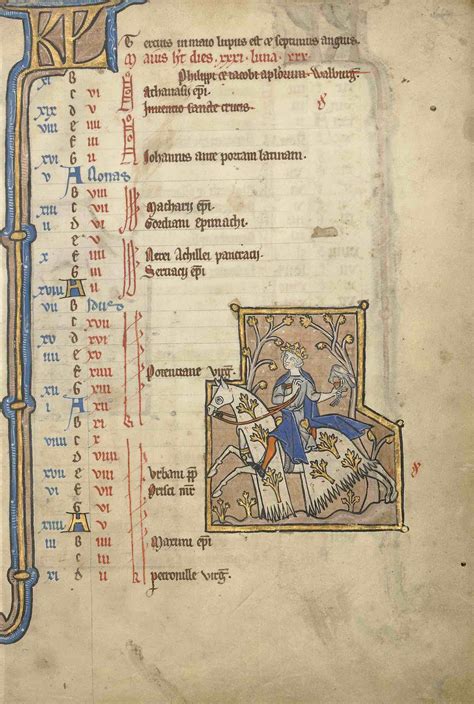 KL Tercius in maio lupus est et septimus anguis.
Maius ht dies xxxi luna xxx.
xi B Philippi et iacobi aplorum. Walburg.
c vi Athanasii epi
xix d v Inventio sancte crucis.
viii e iiii
f iii
xvi G ii Iohannis ante portam latinam.
v A Nonas
B viii
xiii c vii Macharii epi
ii d vi Gordiani epimachi
e v
f iiii Nerei Achillei pancracii
G iii Servacii epi
xviii A ii
B Idus
c xvii
xv d xvi
iiii e xv
f xiiii
xii G xiii Potenciane virg
i A xii
B
viiii c x
d viiii
xvii e viii Urbani pp
vi f vii Prisci mr
G vi
xiiii A v
iii B iiii Maximi epi
c iii
xi d ii petronille virg.